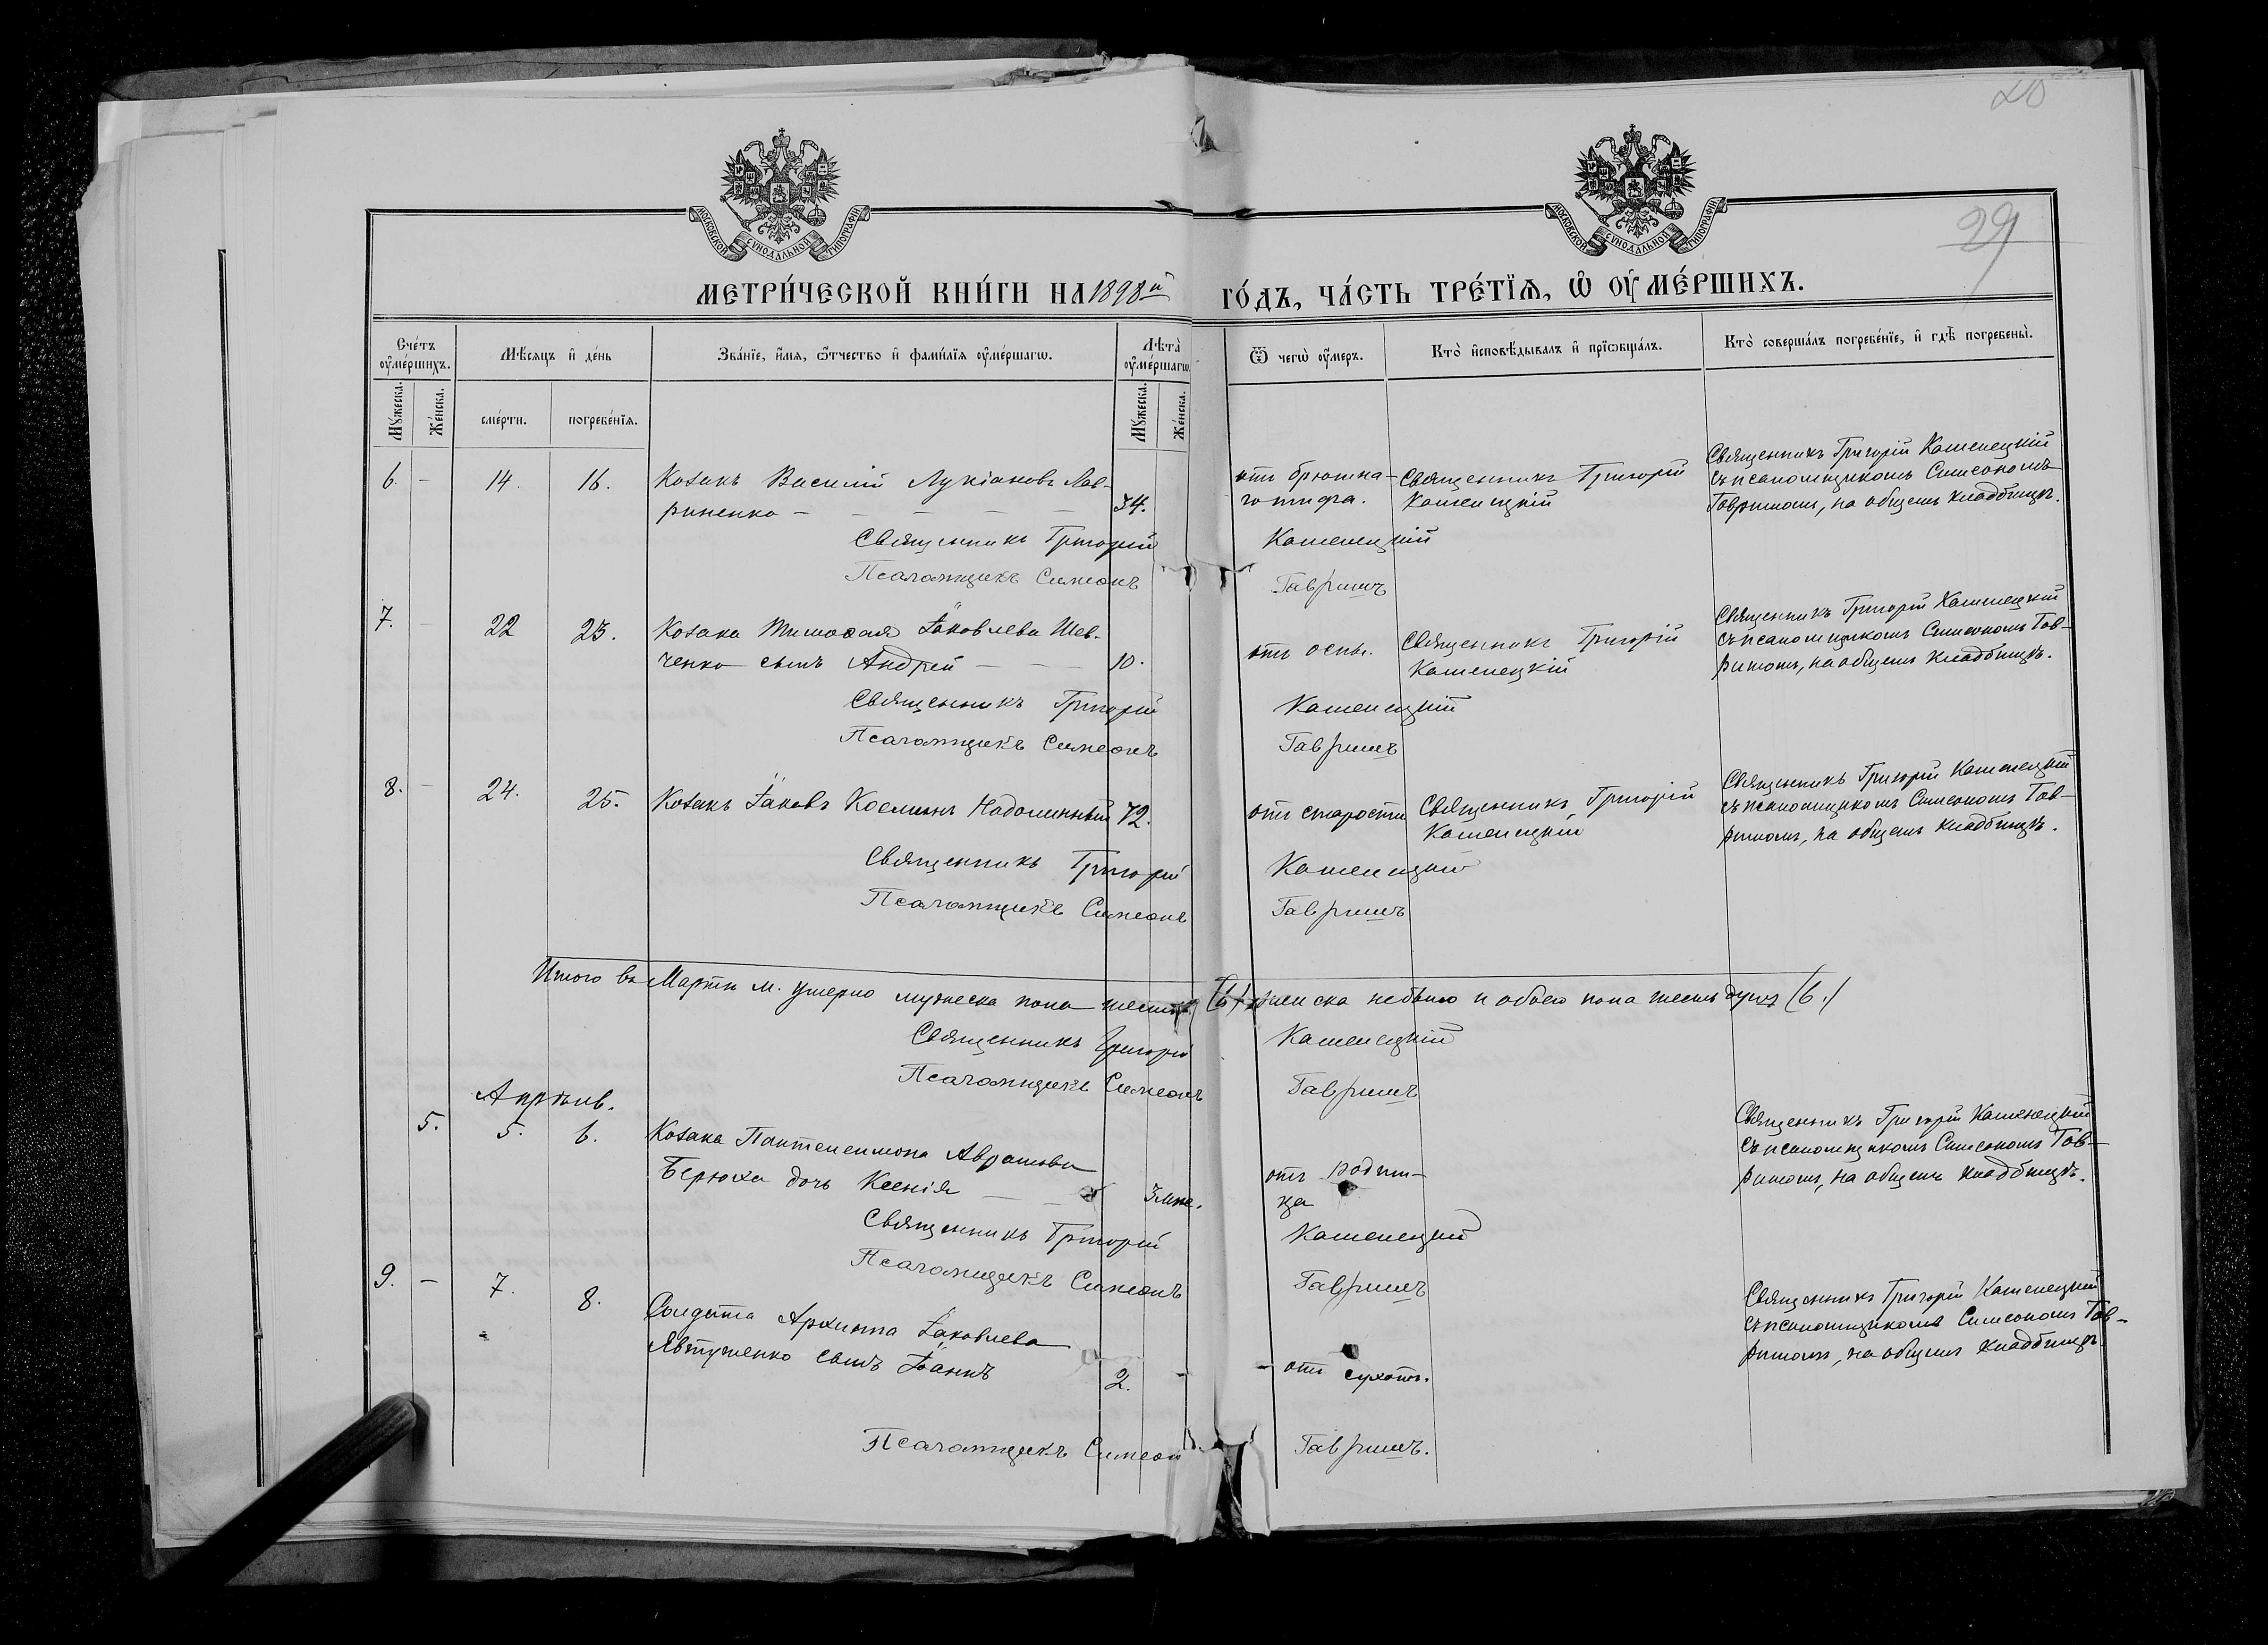 20
29
МОСКОВСКОЙ СѴНОДАЛЬНОЙ ТИПОГРАФІИ
МОСКОВСКОЙ СѴНОДАЛЬНОЙ ТИПОГРАФІИ
МЕТРИ́ЧЕСКОЙ КНИ́ГИ НА 1898й ГО́ДЪ, ЧА́СТЬ ТРЕ́ТЇѦ, Ѡ ОУМЕ́РШИХЪ.
Сче́тъ оумершихъ.
Мѣсяцъ и де́нь
Зва́нїе, и́мѧ, ѻ҆́тчество и фами́лїѧ оуме́ршагѡ.
Лѣта̀ оуме́ршагѡ.
Ѿ чегѡ̀ оумеръ.
Кто̀ исповѣдывалъ и прїѡбща́лъ.
Кто̀ соверша́лъ погребе́нїе, и гдѣ погребены̀.
Мужеска.
Же́нска.
сме́рти.
погребе́нїѧ.
Мужеска.
Же́нска.
6. - 14. 16. Козакъ Василій Лукіановъ Лав-
риненко - - - - - 34.
отъ брюшна-
го тифа.
Священникъ Григорій
Каменецкій
Священникъ Григорій Каменецкій
съ псаломщикомъ Симеономъ
Гавришомъ, на общемъ кладбищѣ.
Священникъ Григорій Каменецкій
Псаломщикъ Симеонъ Гавришъ
7. - 22 23. Козака Яковлева Шев-
ченко сынъ Андрей - - - 10.
отъ оспы.
Священникъ Григорій
Каменецкій
Священникъ Григорій Каменецкій
съ псаломщикомъ Симеономъ Гав-
ришомъ, на общемъ кладбищѣ.
Священникъ Григорій Каменецкій
Псаломщикъ Симеонъ Гавришъ
8. - 24. 25. Козакъ Яковъ Космынъ 72.
отъ старости
Священникъ Григорій
Каменецкій
Священникъ Григорій Каменецкій
съ псаломщикомъ Симеономъ Гав-
ришомъ, на общемъ кладбищѣ.
Священникъ Григорій Каменецкій
Псаломщикъ Симеонъ Гавришъ
Итого въ Мартѣ м. умерло мужеска пола шесть (6) женска небыло и обоего пола шесть душъ (6.)
Священникъ Григорій Каменецкій
Псаломщикъ Симеонъ Гавришъ
Апрѣль.
5. 5. 6. Козака Пантелеимона Аврамова
Берюха дочь Ксенія - - 3 мѣс.
отъ родим-
ца
Священникъ Григорій Каменецкій
съ псаломщикомъ Симеономъ Гав-
ришомъ, на общемъ кладбищѣ.
Священникъ Григорій Каменецкій
Псаломщикъ Симеонъ Гавришъ
9. - 7. 8. Солдата Архипа Яковлева
Явтушенко сынъ Іоаннъ 2. -
- отъ сухотъ.
Священникъ Григорій Каменецкій
съ псаломщикомъ Симеономъ Гав-
ришомъ, на общемъ кладбищѣ.
Псаломщикъ Симеон Гавришъ.